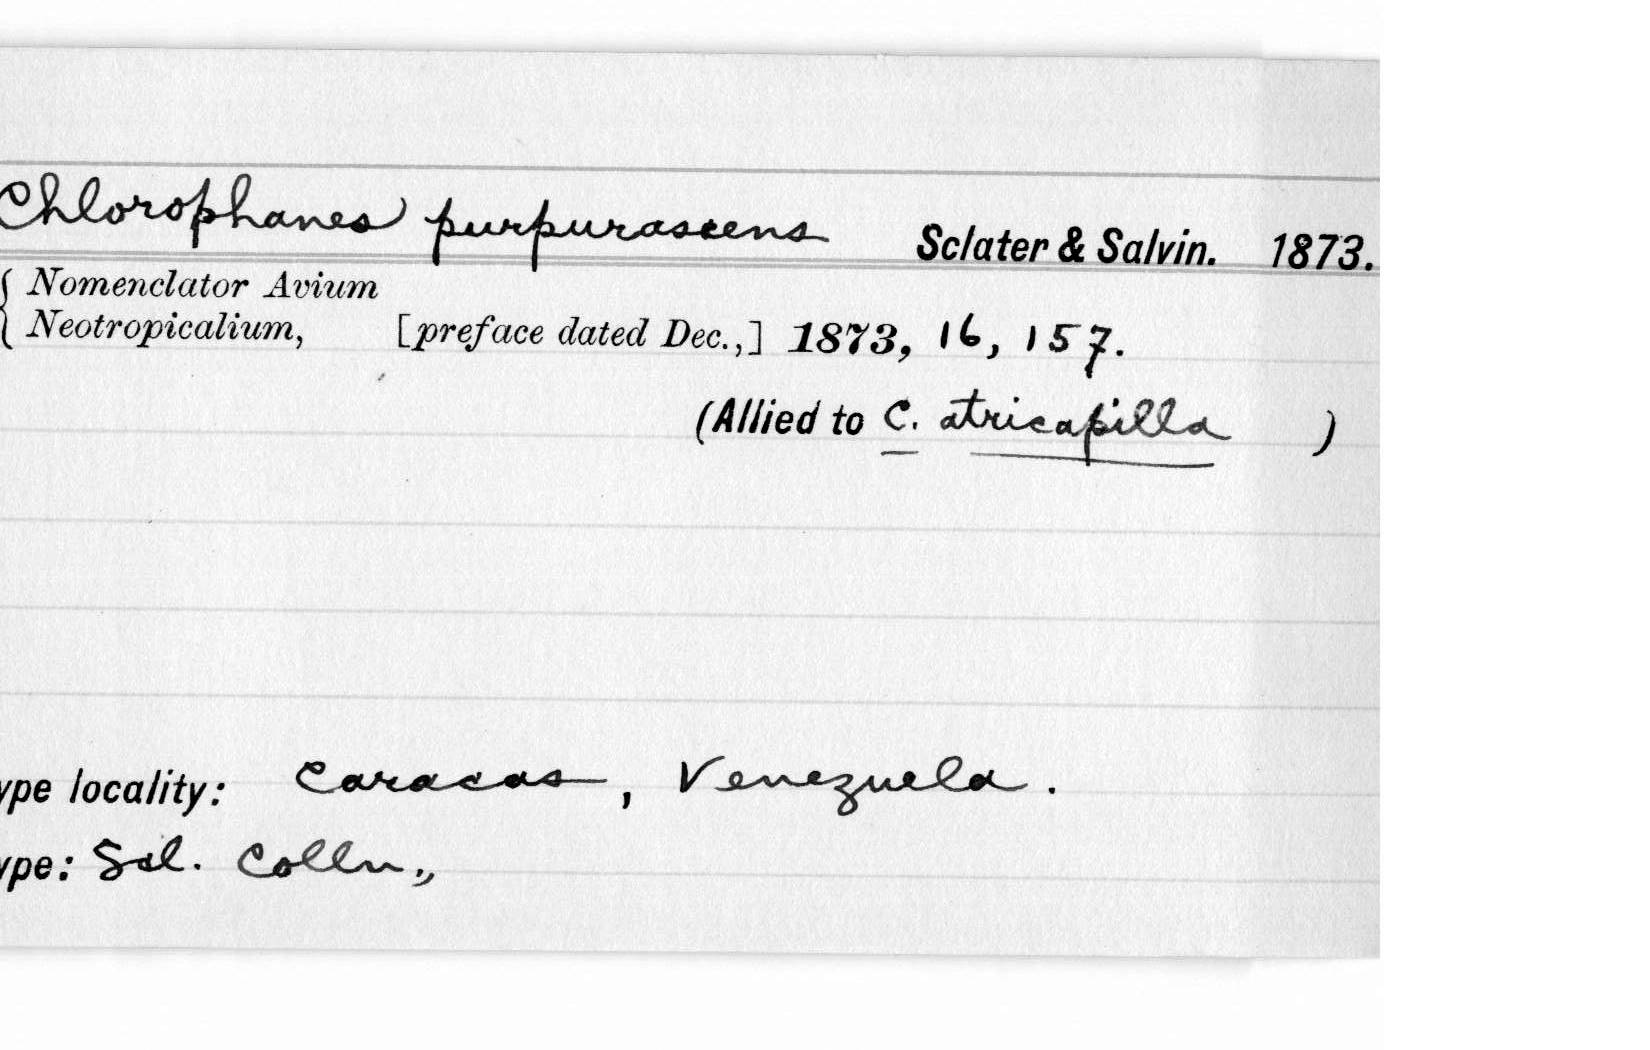 Chlorophanes purpurascens Sclater & Salvin. 1873.
Nomenclator Avium
Neotropicalium, [preface dated Dec.,] 1873, 16, 157.
(Allied to C. atricapilla )
ype locality: Caracas, Venezuela.
ype: Scl. Colln.,